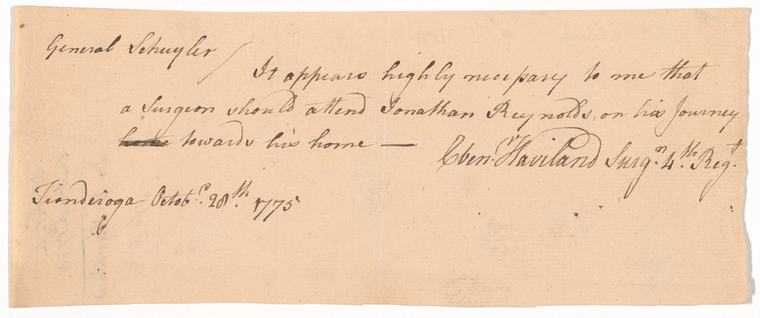 General Schuyler /
It appears highly necessary to me that
a Surgeon should attend Jonathan Reynolds, on his Journey
home towards his home —
Ebenr. Haviland Surgn. 4th. Regt.
Ticonderoga Octobr. 28th. 1775